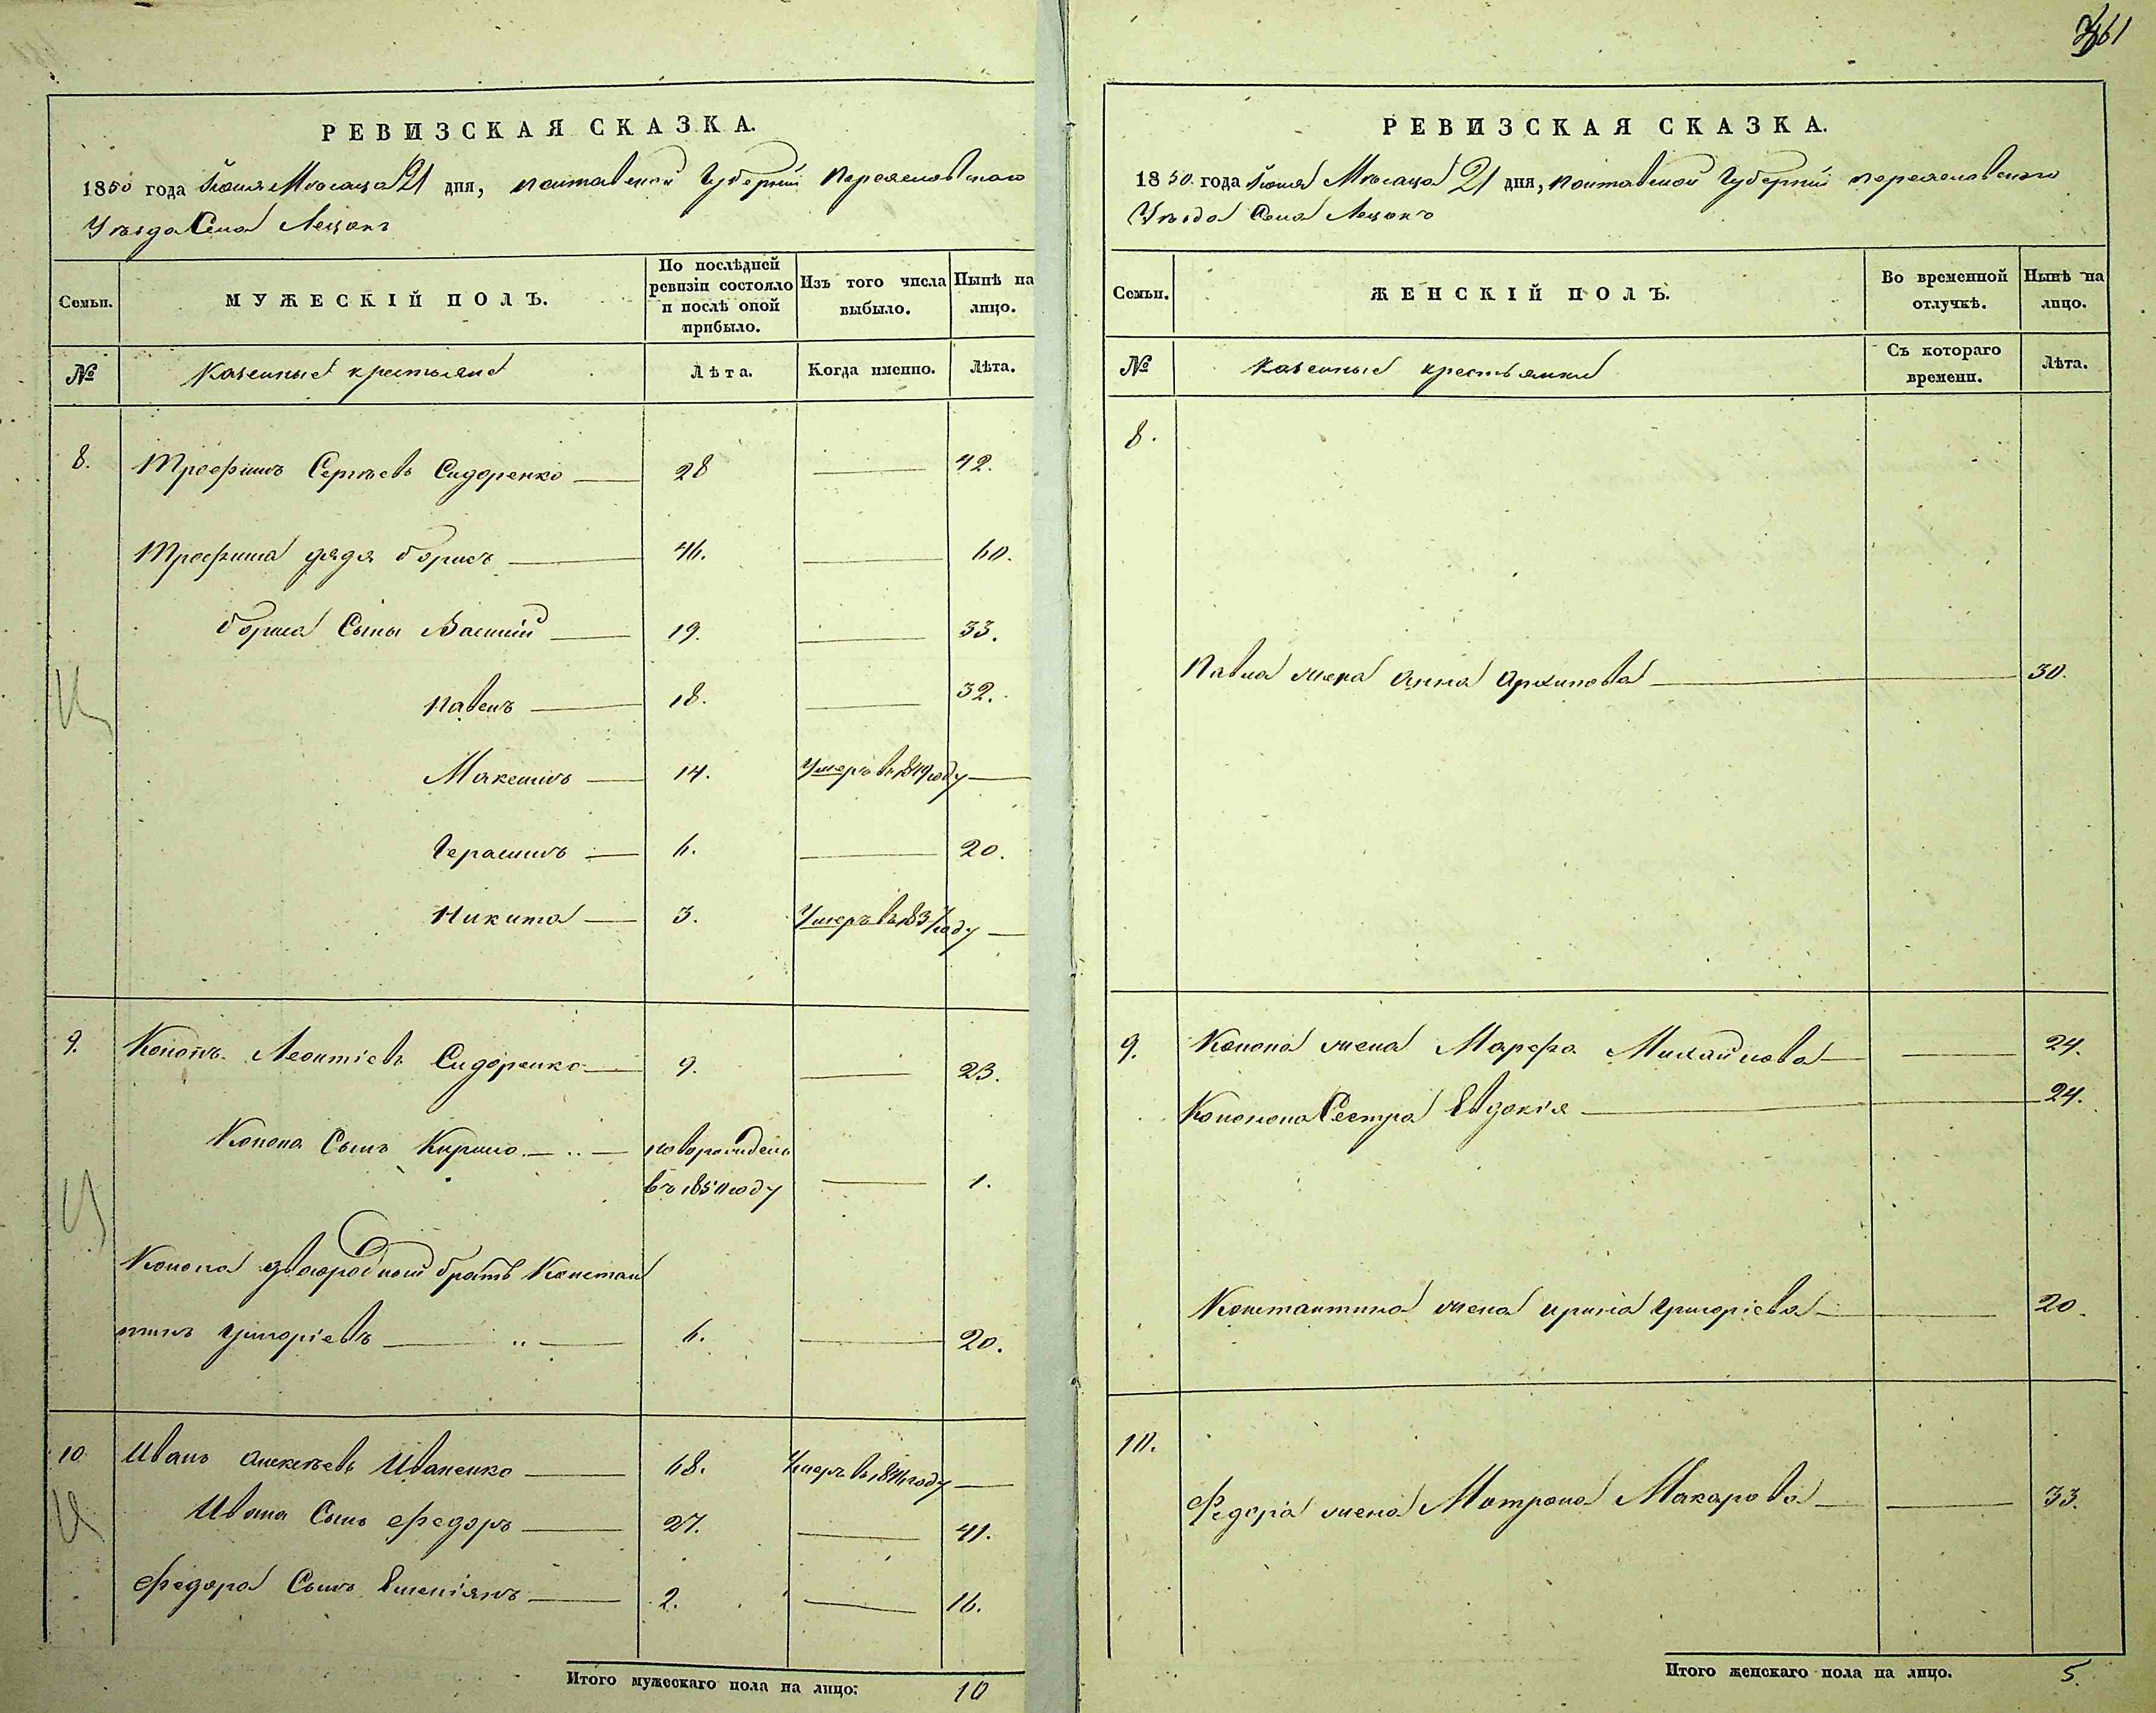 РЕВИЗСКАЯ СКАЗКА.
1850 года Июня Мѣсяца 21 дня, Полтавской Губерніи Переяславскаго
Уѣзда Села Лецокъ
Семьи.
МУЖЕСКІЙ ПОЛЪ.
По послѣдней
ревизіи состояло
и послѣ оной
прибыло.
Изъ того числа
выбыло.
Нынѣ на
лицо.
№
Казенные крестьяне
Лѣта.
Когда именно.
Лѣта.
8. Трофимъ Сергѣевъ Сидоренко 28 42.
Трофима дядя Борисъ 46. 60.
Бориса Сыны Василій 19. 33.
Павелъ 18. 32.
Максимъ 14. Умеръ въ году
Герасимъ 6. 20.
Никита 3. Умеръ въ 1837 году
9. Кононъ Леонтіевъ Сидоренко 9. 23.
Конона Сынъ Кирило новорожденъ
въ 1850 году 1.
Конона двоюродный братъ Констан
тинъ Григоріевъ 6. 20.
10 Иванъ Алексѣевъ Иваненко 68. Умеръ въ году
Ивана Сынъ Федоръ 27. 41.
Федора Сынъ Емеліянъ 2. 16.
Итого мужескаго пола на лицо: 10
361
РЕВИЗСКАЯ СКАЗКА.
1850. года Июня Мѣсяца 21 дня, Полтавской Губерніи Переяславскаго
Уѣзда Села Лецокъ
Семьи.
ЖЕНСКІЙ ПОЛЪ.
Во временной
отлучкѣ.
Нынѣ на
лицо.
№
Казенные крестьянки
Съ котораго
времени.
Лѣта.
8.
Павла жена Анна Архипова 30.
9. Конона жена Марфа Михайлова 24.
Конона Сестра Евдокія 24.
Константина жена Ирина Григоріева 20.
10.
Федора жена Матрона Макарова 33.
Итого женскаго пола на лицо. 5.